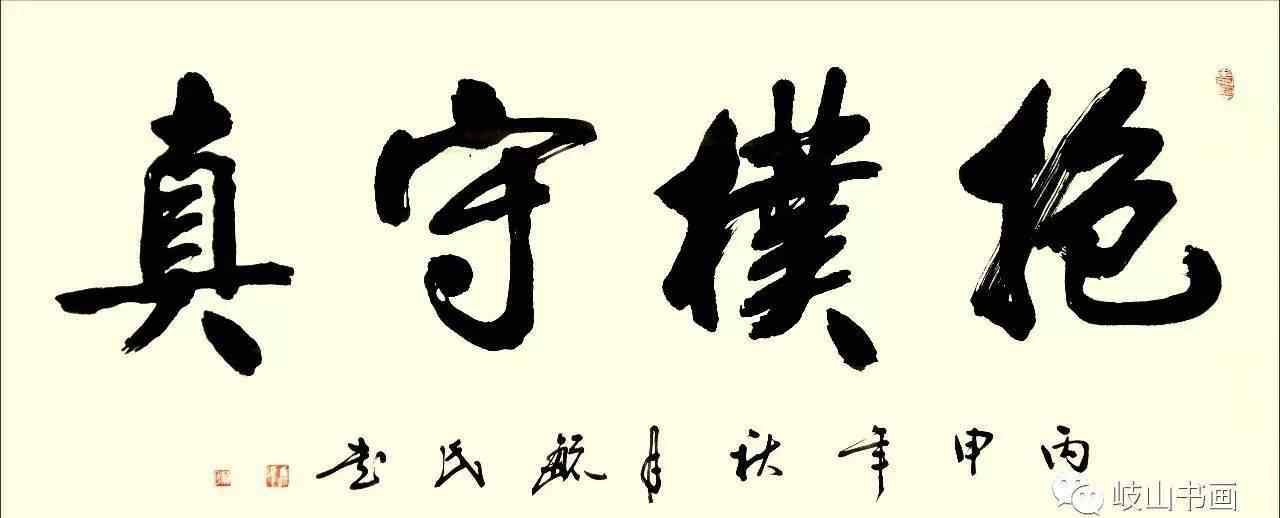 抱樸守真
丙申年秋月毓民书
岐山书画